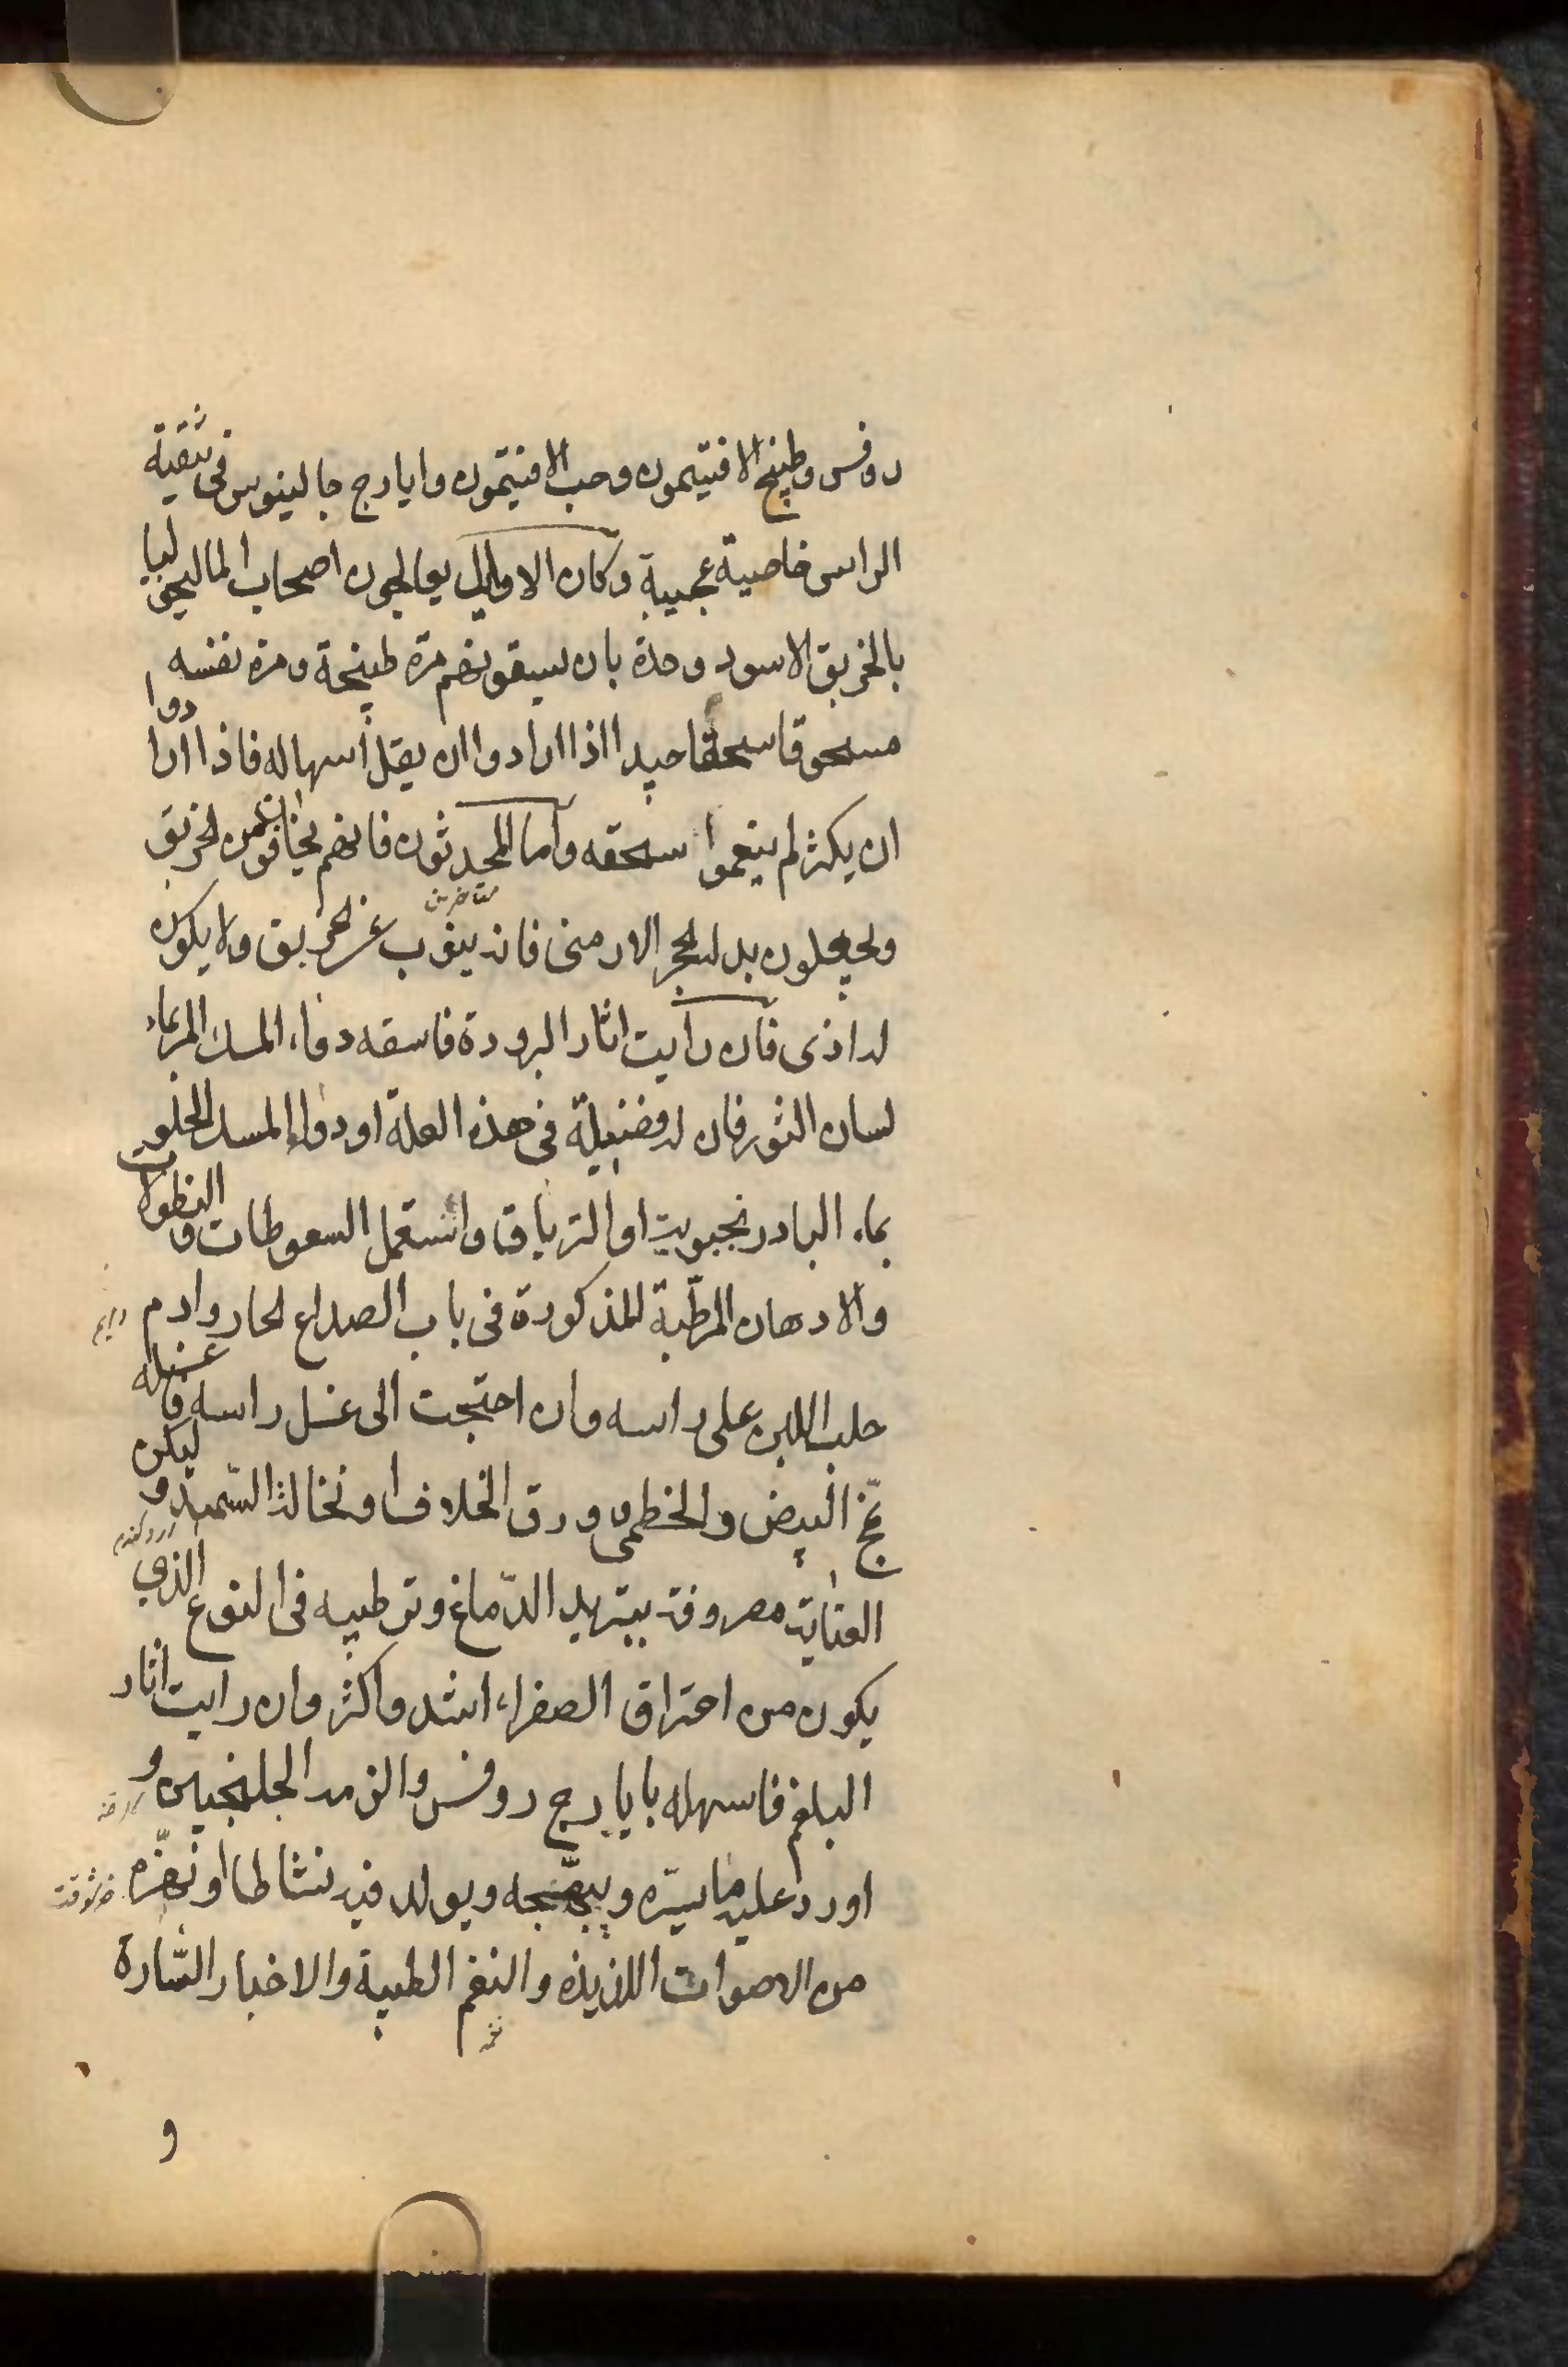 روفس وطبيخ الافتيمون وحب الافتيمون وايارج جالينوس فى تنقية
الراس خاصية عجيبة وكان الاوايل يعالجون اصحاب الماليخوليا
بالخربق الاسود وحدة بان يسقونهم مرة طبيخة ومرة نفسه
مسحوقا سحقا جيدا اذا ارادوا ان يقل اسهاله فاذا ارادوا
ان يكثر لم ينعموا سحقه واما المحدثون فانهم يخافون من الخربق
ويجعلون بدله الحجر الارمنى فانه ينوب عن الخربق ولا يكون
له اذى فان رايت اثار البرودة فاسقه دواء المسك المر بماء
لسان الثور فان له فضيلة فى هذه العلة او دواء المسك الحلو
بماء البادرنجبوية او الترياق واستعمل السعوطات والنطولات
والادهان المرطبة المذكورة فى باب الصداع الحار وادم
حلب اللبن على راسه وان احتجت الى غسل راسه فاغسله
بمخ البيض والخطمى وورق الخلاف او نخالة السميد وليكن
العناية مصروفة بتبريد الدّماغ وترطيبه فى النوع الذي
يكون من احتراق الصفراء اشد واكثر وان رايت اثار
البلغم فاسهله بايارج روفس والزمه الجلنجبين و
اورد عليه ما يسّره ويبهّجه ويولد فيه نشاطا او تهزّه
من الاصوات اللذيذه والنغم الطيبة والاخبار السّارة
و